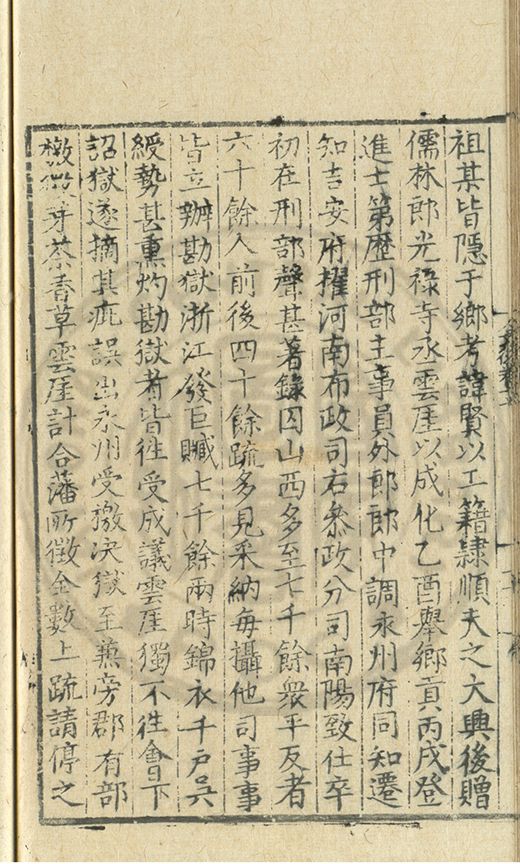 祖某皆隱于鄉考諱賢以工籍隷順天之大興後贈
儒林郎光禄寺丞雲厓以成化乙酉舉鄉貢丙戌登
進士第歷刑部主事員外郎郎中調永州府同知遷
知吉安府擢河南布政司右叅政分司南陽致仕卒
初在刑部聲甚著錄囚山西多至七千餘衆平反者
六十餘人前後四十餘疏多見采納每攝他司事事
皆立辦勘獄浙江發巨贓七千餘兩時錦衣千戶吳
綬勢甚熏灼勘獄者皆徃受成議雲厓獨不徃會下
詔獄遂摘其疵誤出永州受檄决獄至蒸旁郡有部
檄徴芽茶香草雲厓計合藩所徵全數上疏請停之